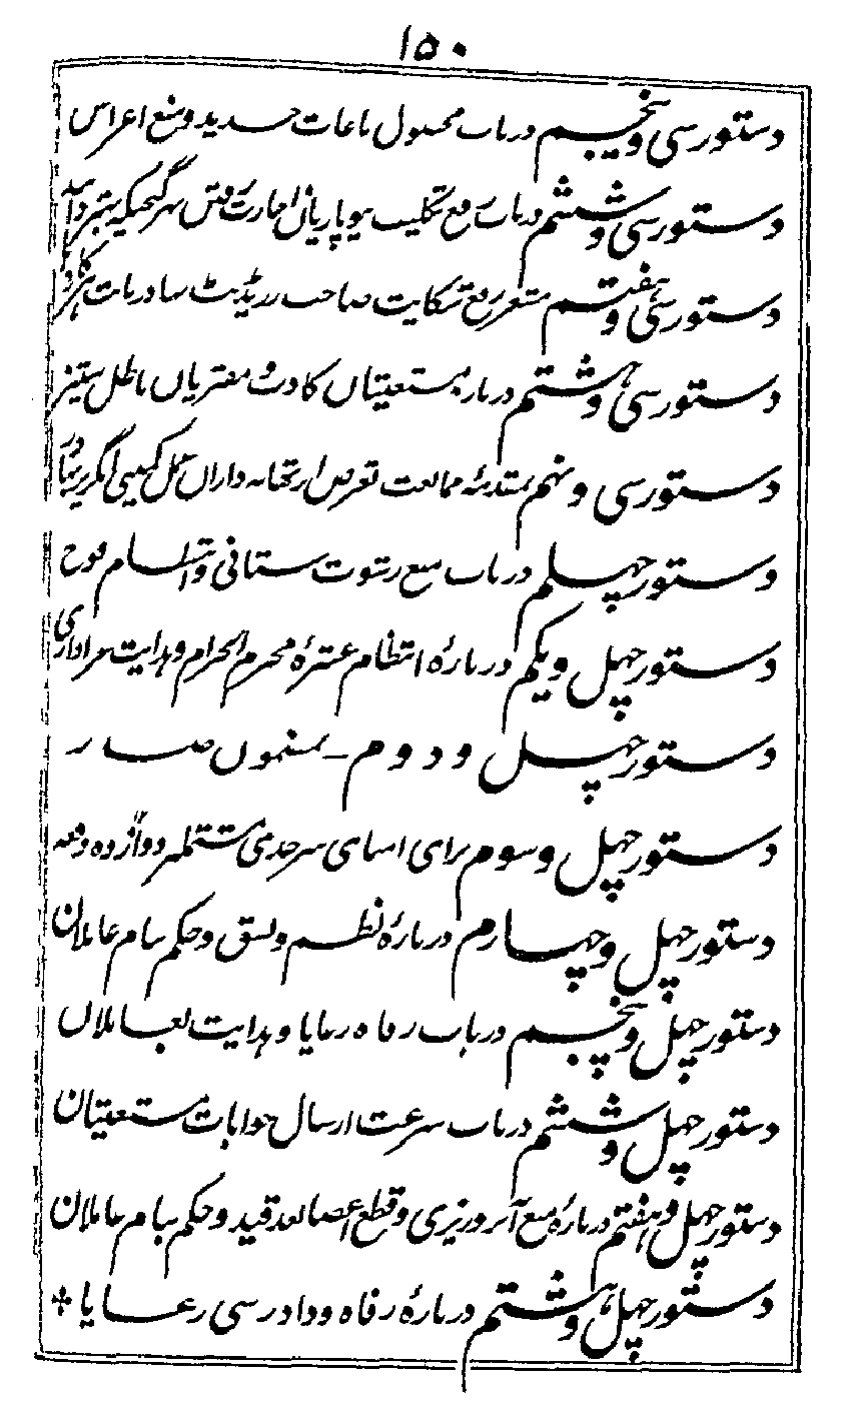 ۱۵۰
دستور سی و پنجم در باب محصول باغات جدید و منع اعراس
دستور سی و ششم در باب رفع تکلیف بیوپاریان
دستور سی و هفتم متعر رفع شکایت صاحب رزیڈنٹ بہادر بابت
دستور سی و هشتم در باره مستغیثان کاذب و مفتریان باطل ستیز
دستور سی و نهم بقدغنه ممانعت تعرض داران کمپنی انگریز بهادر
دستور چهلم در باب منع رشوت ستانی و اقسام فوج
دستور چهل و یکم در بارهٔ انتظام عشرهٔ محرم الحرام و هدایت عزاداری
دستور چهل و دوم بمضمون صدر
دستور چهل و سوم برای امنای سرحدی مشتمل بر دوازده دفعه
دستور چهل و چهارم در بارهٔ نظم و نسق و حکم بنام عاملان
دستور چهل و پنجم در باب رفاه رعایا و هدایت بعاملان
دستور چهل و ششم در باب سرعت ارسال جوابات مستغیثان
دستور چهل و هفتم در بارهٔ منع آبروریزی و قطع اعضا بعد قید و حکم بنام عاملان
دستور چهل و هشتم در بارهٔ رفاه و دادرسی رعایا